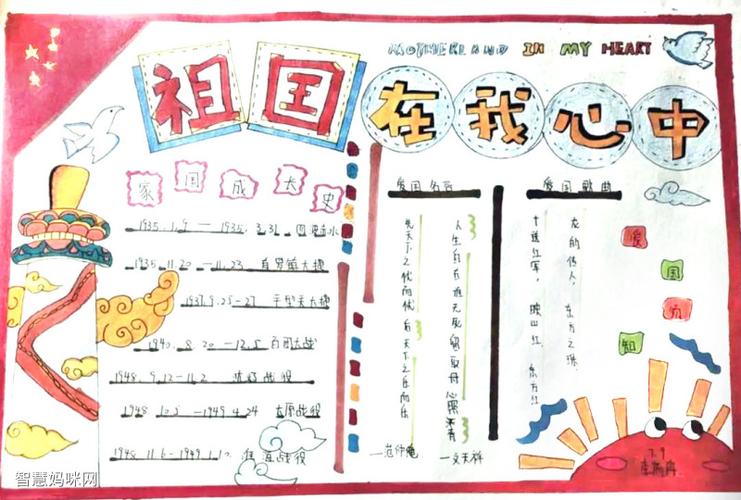 MOTHERLAND IN MY HEART
祖国在我心中
家国成长史
1935.1.9—1935.3.31 四渡赤水
1935.11.20—11.23 直罗镇大捷
1937.9.25-27 平型关大捷
1940.8.20—12.5 百团大战
1948.9.12—11.2 辽沈战役
1948.10.5—1949.4.24 太原战役
1948.11.6—1949.1.10 淮海战役
爱国名言
先天下之忧而忧 后天下之乐而乐
—范仲淹
人生自古谁无死 留取丹心照汗青
—文天祥
爱国歌曲
龙的传人, 东方之珠,
十送红军, 映山红 东方红
爱
国
知
7.9
智慧妈咪网